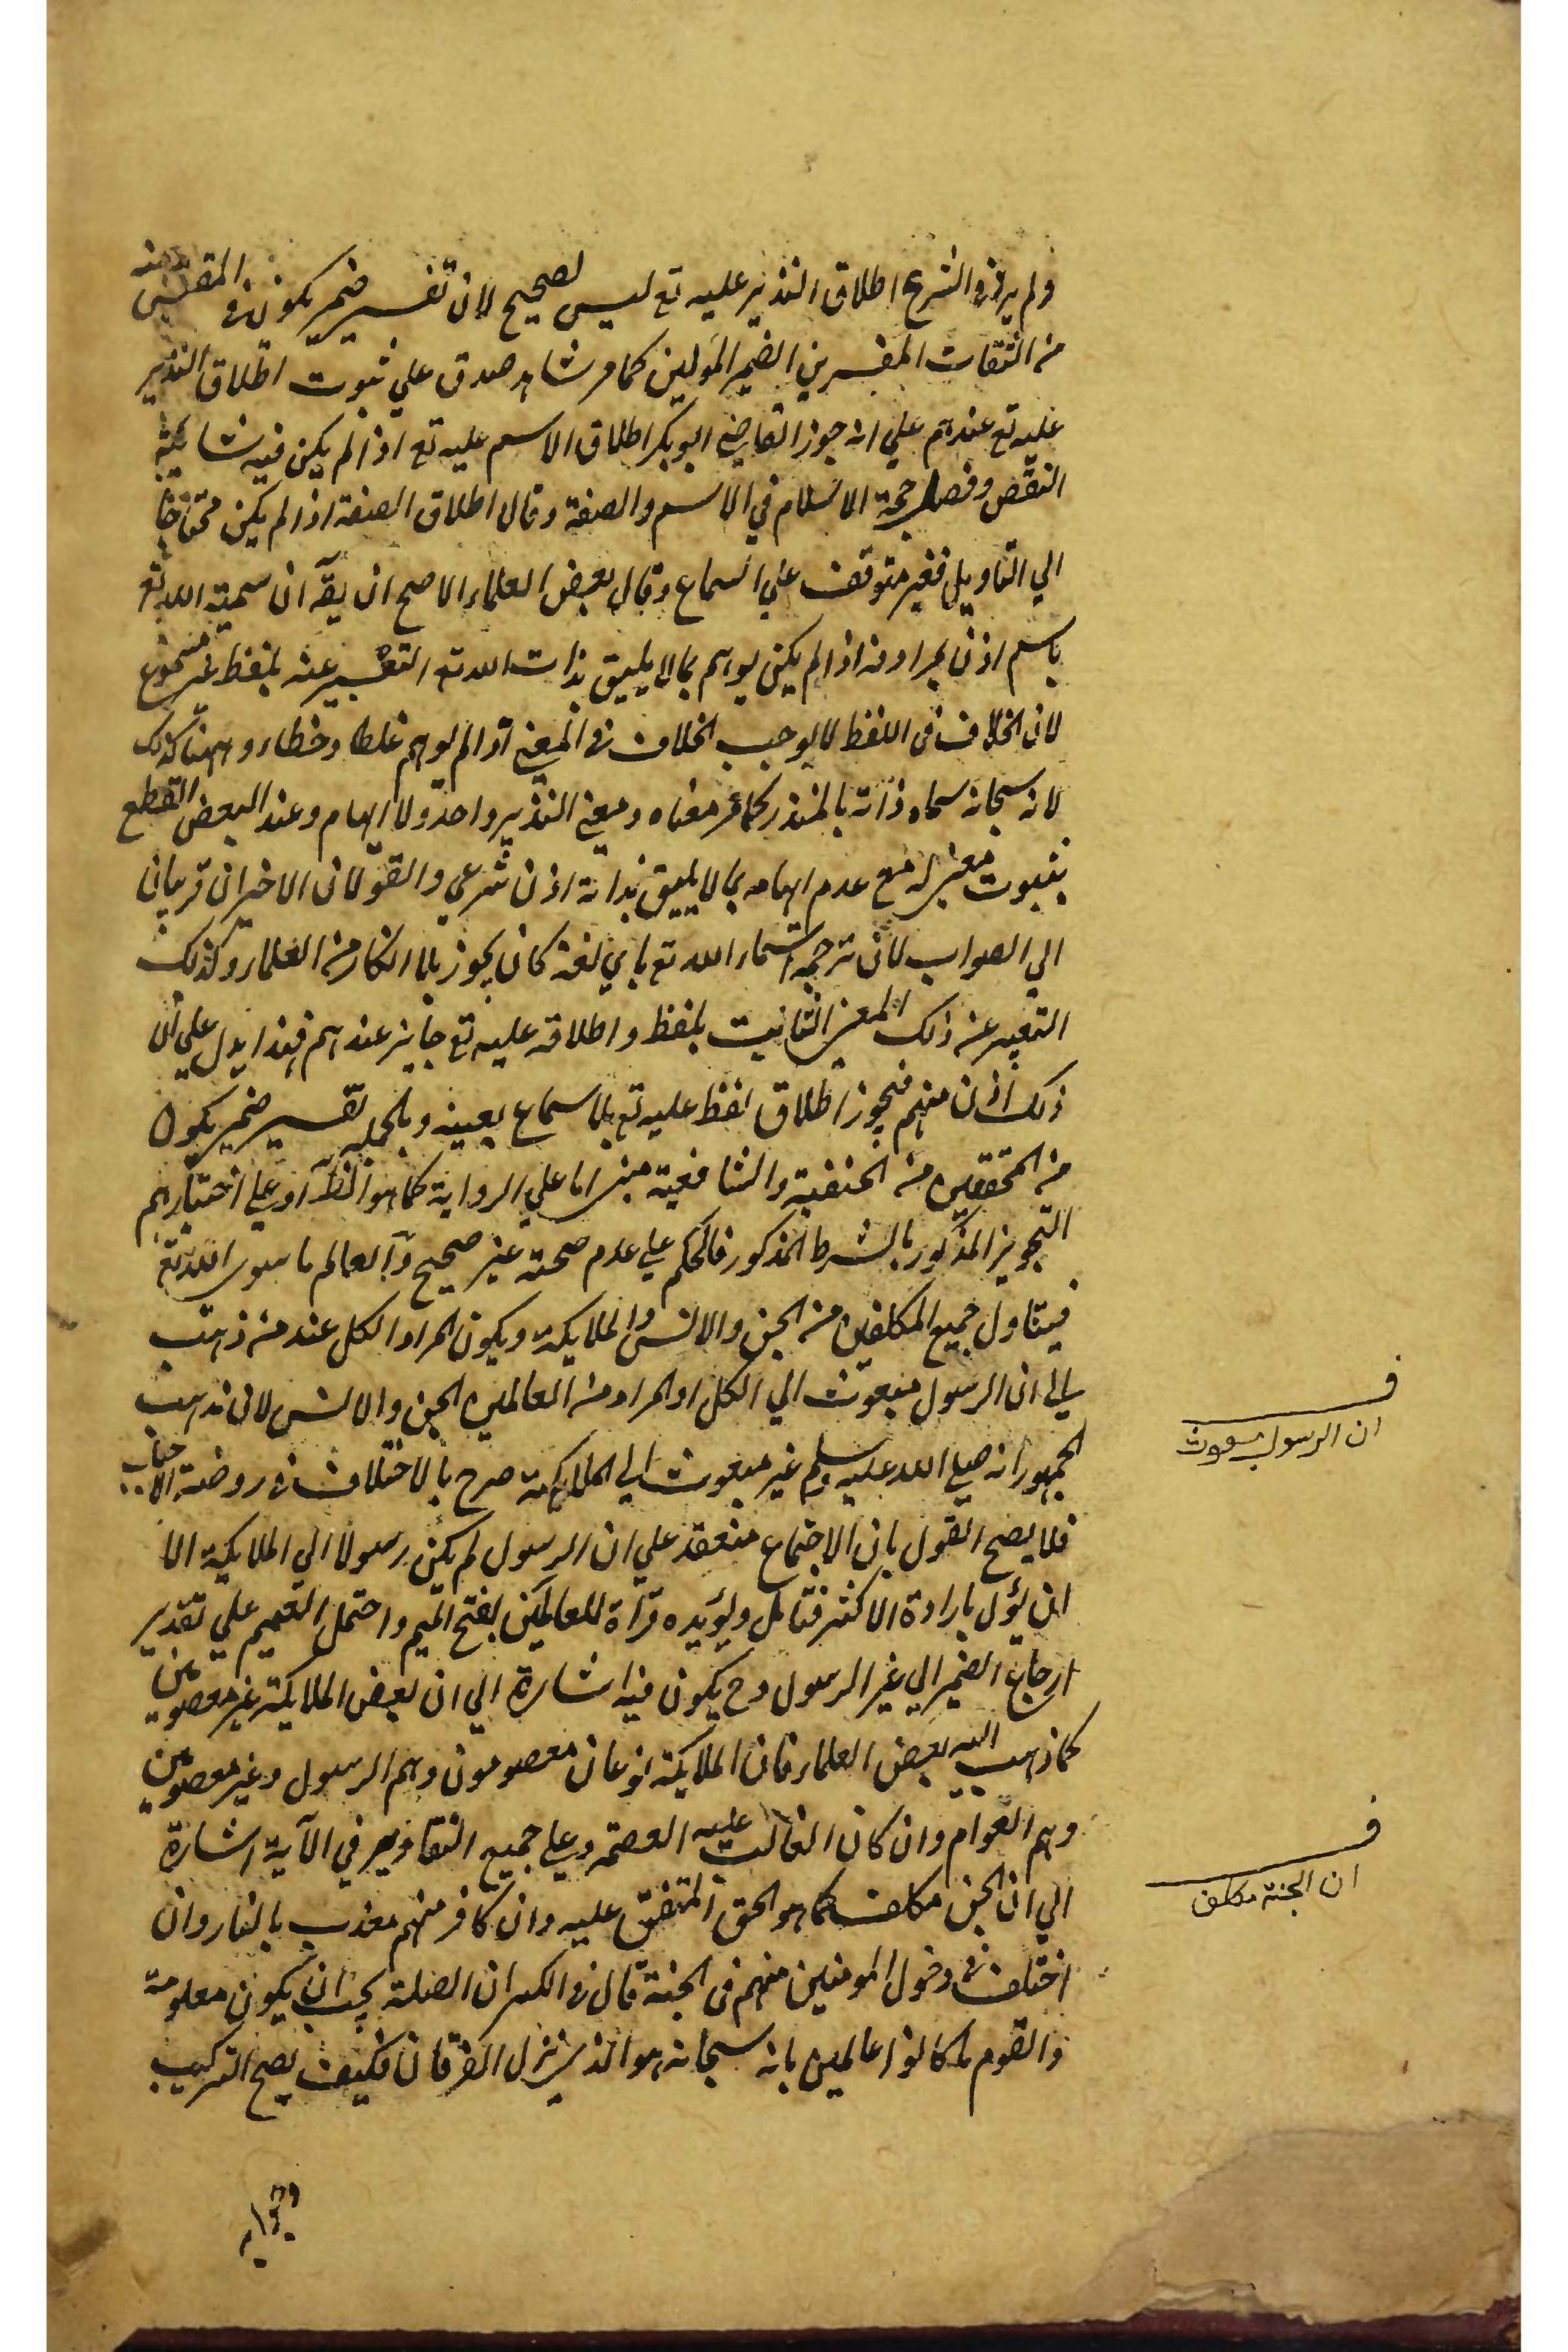 ولم يرد في الشرع اطلاق النذير عليه تع ليس بصحيح لان تفسير ضمير يكون في
من الثقات المفسرين الضمير المولين كما مر شاهد صدق علي ثبوت اطلاق النذير
عليه تع عندهم علي انه جوز القاضي ابو بكر اطلاق الاسم عليه تع اذا لم يكن فيه شائبة
النقص وفصل حجة الاسلام في الاسم والصفة وقال اطلاق الصفة اذا لم يكن محتاجا
الي التاويل فغير متوقف علي السماع وقال بعض العلماء الاصح ان يقآ ان سمية الله تع
باسم اذن بمرادفه اذا لم يكن يوهم بما لا يليق بذات الله تع التعبير عنه بلفظ غير مسموع
لان الخلاف في اللفظ لا يوجب الخلاف في المعني اذا لم يوهم غلطا وخطاء وههنا كذلك
لانه سبحانه سماه ذاته بالمنذر كما مر معناه ومعني النذير واحد ولا ايهام وعند البعض القطع
بثبوت معني له مع عدم ايهامه بما لا يليق بذاته اذن شرعي والقولان الاخيران قريبان
الي الصواب لان ترجمة اسماء الله تع باي لغة كان يجوز بلا انكار من العلماء وكذلك
التعبير عن ذلك المعني الثابت بلفظ واطلاقه عليه تع جايز عندهم فهذا يدل علي ان
ذلك اذن منهم فيجوز اطلاق لفظ عليه تع بلا سماع بعينه وبالجملة تفسير ضمير يكون
من المحققين من الحنفية والشافعية مبني اما علي الرواية كما هو الظآ او علي اختيارهم
التجويز المذكور بالشرط المذكور فالحكم علي عدم صحته غير صحيح وآلعالم ما سوي الله تع
فيتناول جميع المكلفين من الجن والانس والملايكة ويكون المراد الكل عند من ذهب
الي ان الرسول مبعوث الي الكل او المراد من العالمين الجن والانس لان مذهب
الجمهور انه صلي الله عليه وسلم غير مبعوث الي الملايكة صرح بالاختلاف في روضة الاحباب
فلا يصح القول بان الاجماع منعقد علي ان الرسول لم يكن رسولا الي الملايكة الا
ان يؤل بارادة الاكثر فتامل ويؤيده قراة للعالمين بفتح الميم واحتمل التعميم علي تقدير
ارجاع الضمير الي غير الرسول وح يكون فيه اشارة الي ان بعض الملايكة غير معصومين
كما ذهب اليه بعض العلماء فان الملايكة نوعان معصومون وهم الرسول وغير معصومين
وهم العوام وان كان الغالب عليه العصمة وعلي جميع التقادير في الآية اشارة
الي ان الجن مكلف كما هو الحق المتفق عليه وان كافر منهم معذب بالنار وان
اختلف في دخول المومنين منهم في الجنة قال في الكبير ان الصلة يجب ان يكون معلومة
والقوم ما كانوا عالمين بانه سبحانه هو الذي نزل الفرقان فكيف يصح التركيب
ف
ان الرسول مبعوث
ف
ان الجنة مكلف
وجوابه